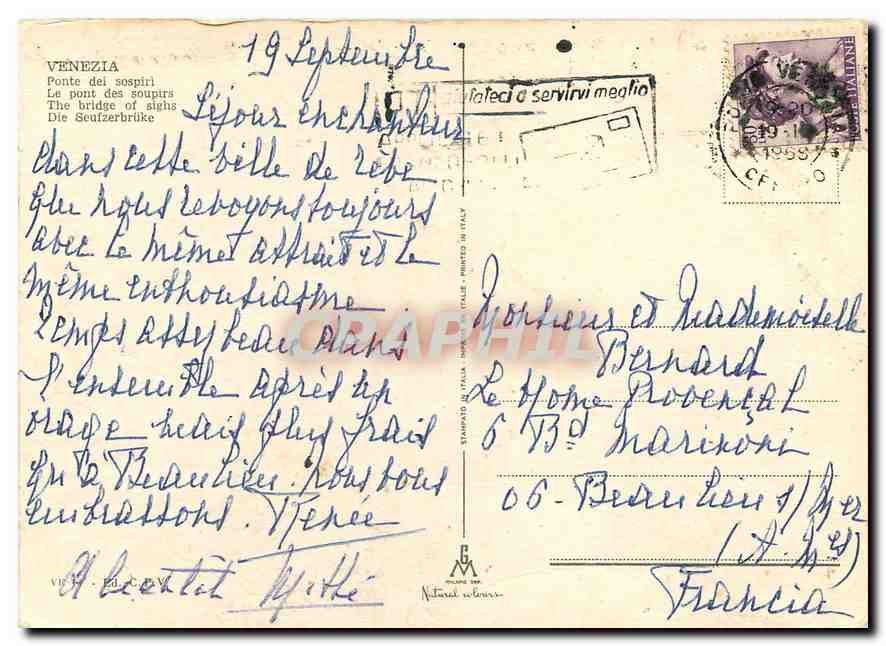 VENEZIA
Ponte dei sospiri
Le pont des soupirs
The bridge of sighs
Die Seufzerbrüke
19 Septembre
Séjour enchanteur
dans cette ville de rêve
que nous revoyons toujours
avec le même attrait et le
même enthousiasme
Temps assez beau dans
l'ensemble après un
orage mais plus frais
qu'à Beaulieu. nous vous
embrassons. Renée
A bientôt
Ed. C.
aiutateci a servirvi meglio
1968
STAMPATO IN ITALIA - IMPRIMÉ EN ITALIE - PRINTED IN ITALY
CPAPHIL
Monsieur et Mademoiselle
Bernard
Le Home Provençal
6 Bd Marinoni
06 - Beaulieu s/Mer
(A. Mes)
Francia
GM
Natural colours